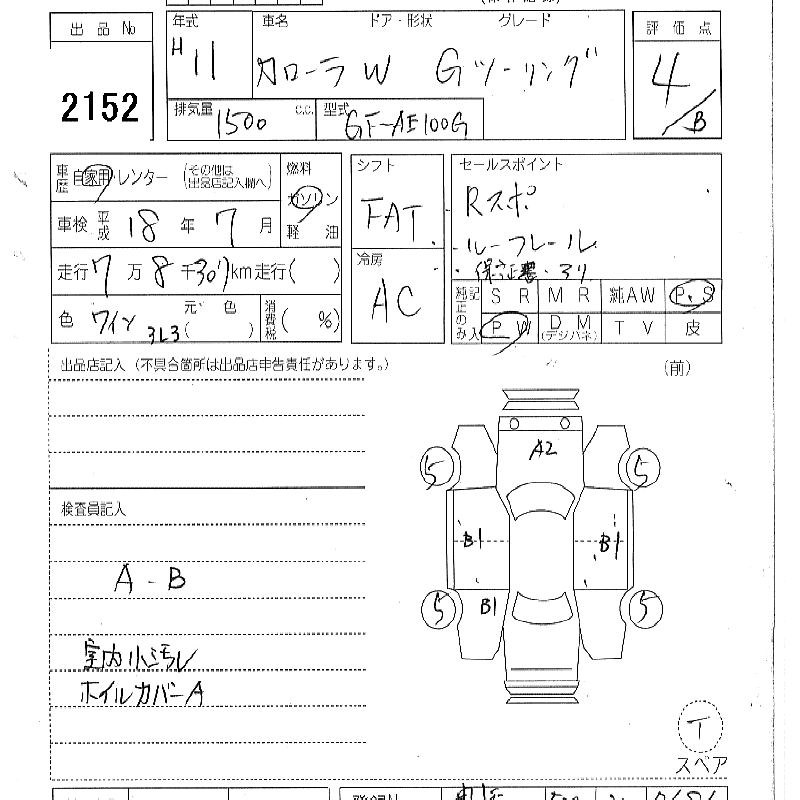 出品 No
2152
年式 車名 ドア・形状 グレード
H 11 カローラW Gツーリング
排気量 1500 c.c. 型式 GF-AE100G
評価点
4/B
車歴 自家用・レンター (その他は出品店記入欄へ)
燃料 ガソリン 軽油
車検 平成 18年 7月
走行 7万8千 km 走行( )
色 ワイン 3L3 元色( )
消費税 ( %)
シフト
FAT
冷房
AC
セールスポイント
Rスポ
・ルーフレール
純正のみ記入
SR MR 純AW P.S
PW DM (デジパネ) TV 皮
出品店記入 (不具合箇所は出品店申告責任があります。)
(前)
検査員記入
A - B
室内小汚レ
ホイルカバーA
A2
5 5
B1 B1
5 B1 5
T
スペア